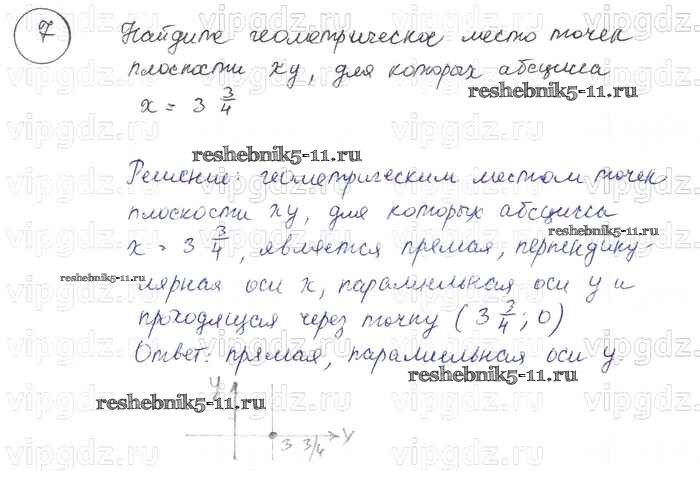 7 Найдите геометрическое место точек
плоскости xy, для которых абсцисса
reshebnik5-11.ru
x = 3 3/4
reshebnik5-11.ru
Решение: геометрическим местом точек
плоскости xy, для которых абсцисса
reshebnik5-11.ru
x = 3 3/4, является прямая, перпендику-
reshebnik5-11.ru
лярная оси x, параллельная оси y и
проходящая через точку (3 3/4; 0)
Ответ: прямая, параллельная оси y.
reshebnik5-11.ru
y
reshebnik5-11.ru
3 3/4 y
vipgdz.ru vipgdz.ru vipgdz.ru vipgdz.ru